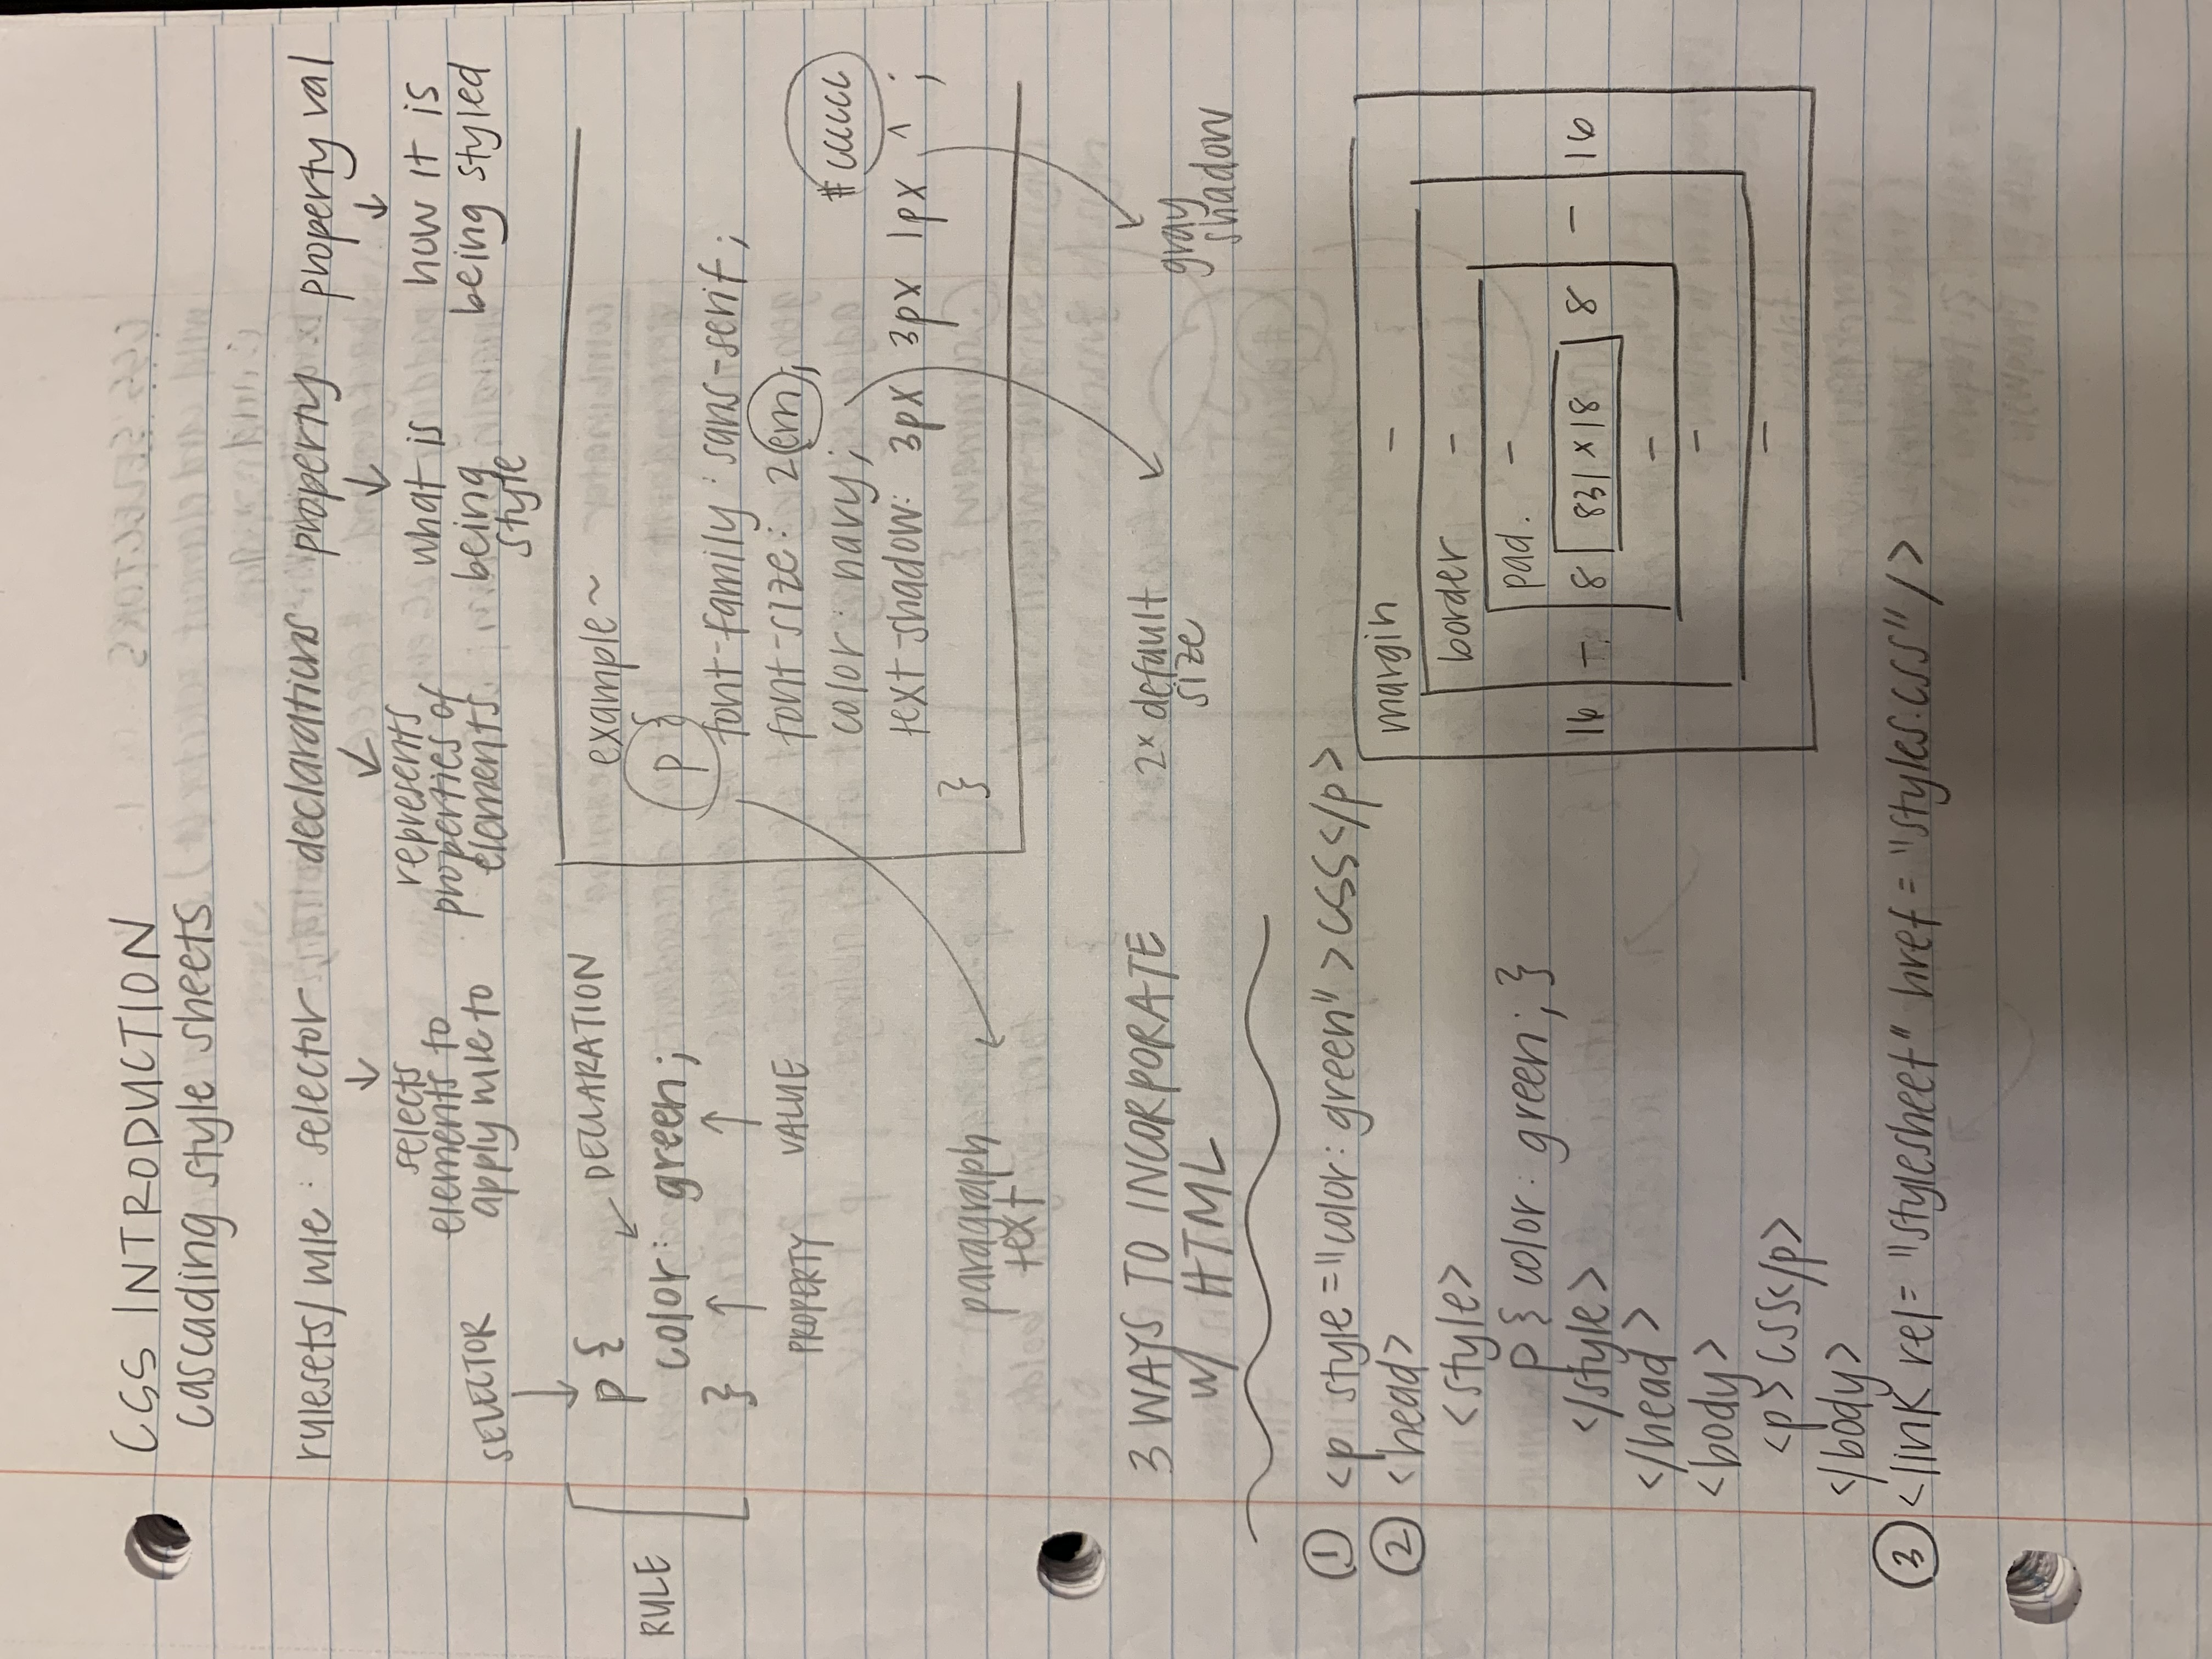 CSS INTRODUCTION
cascading style sheets
rulesets/rule: selector declarations property property val
selects elements to apply rule to
represents properties of elements
what is being style
how it is being styled
SELECTOR
p {
DECLARATION
RULE
color: green;
}
PROPERTY
VALUE
example~
p {
font-family: sans-serif;
font-size: 2em;
color: navy;
#cccccc
text-shadow: 3px 3px 1px ^ ;
}
paragraph
text
2x default
size
gray
shadow
3 WAYS TO INCORPORATE
w/ HTML
① <p style="color: green">CSS</p>
② <head>
<style>
p { color: green; }
</style>
</head>
<body>
<p>CSS</p>
</body>
③ <link rel="stylesheet" href="styles.css"/>
margin -
border -
pad. -
16 - 8 831 x 18 8 - 16
-
-
-